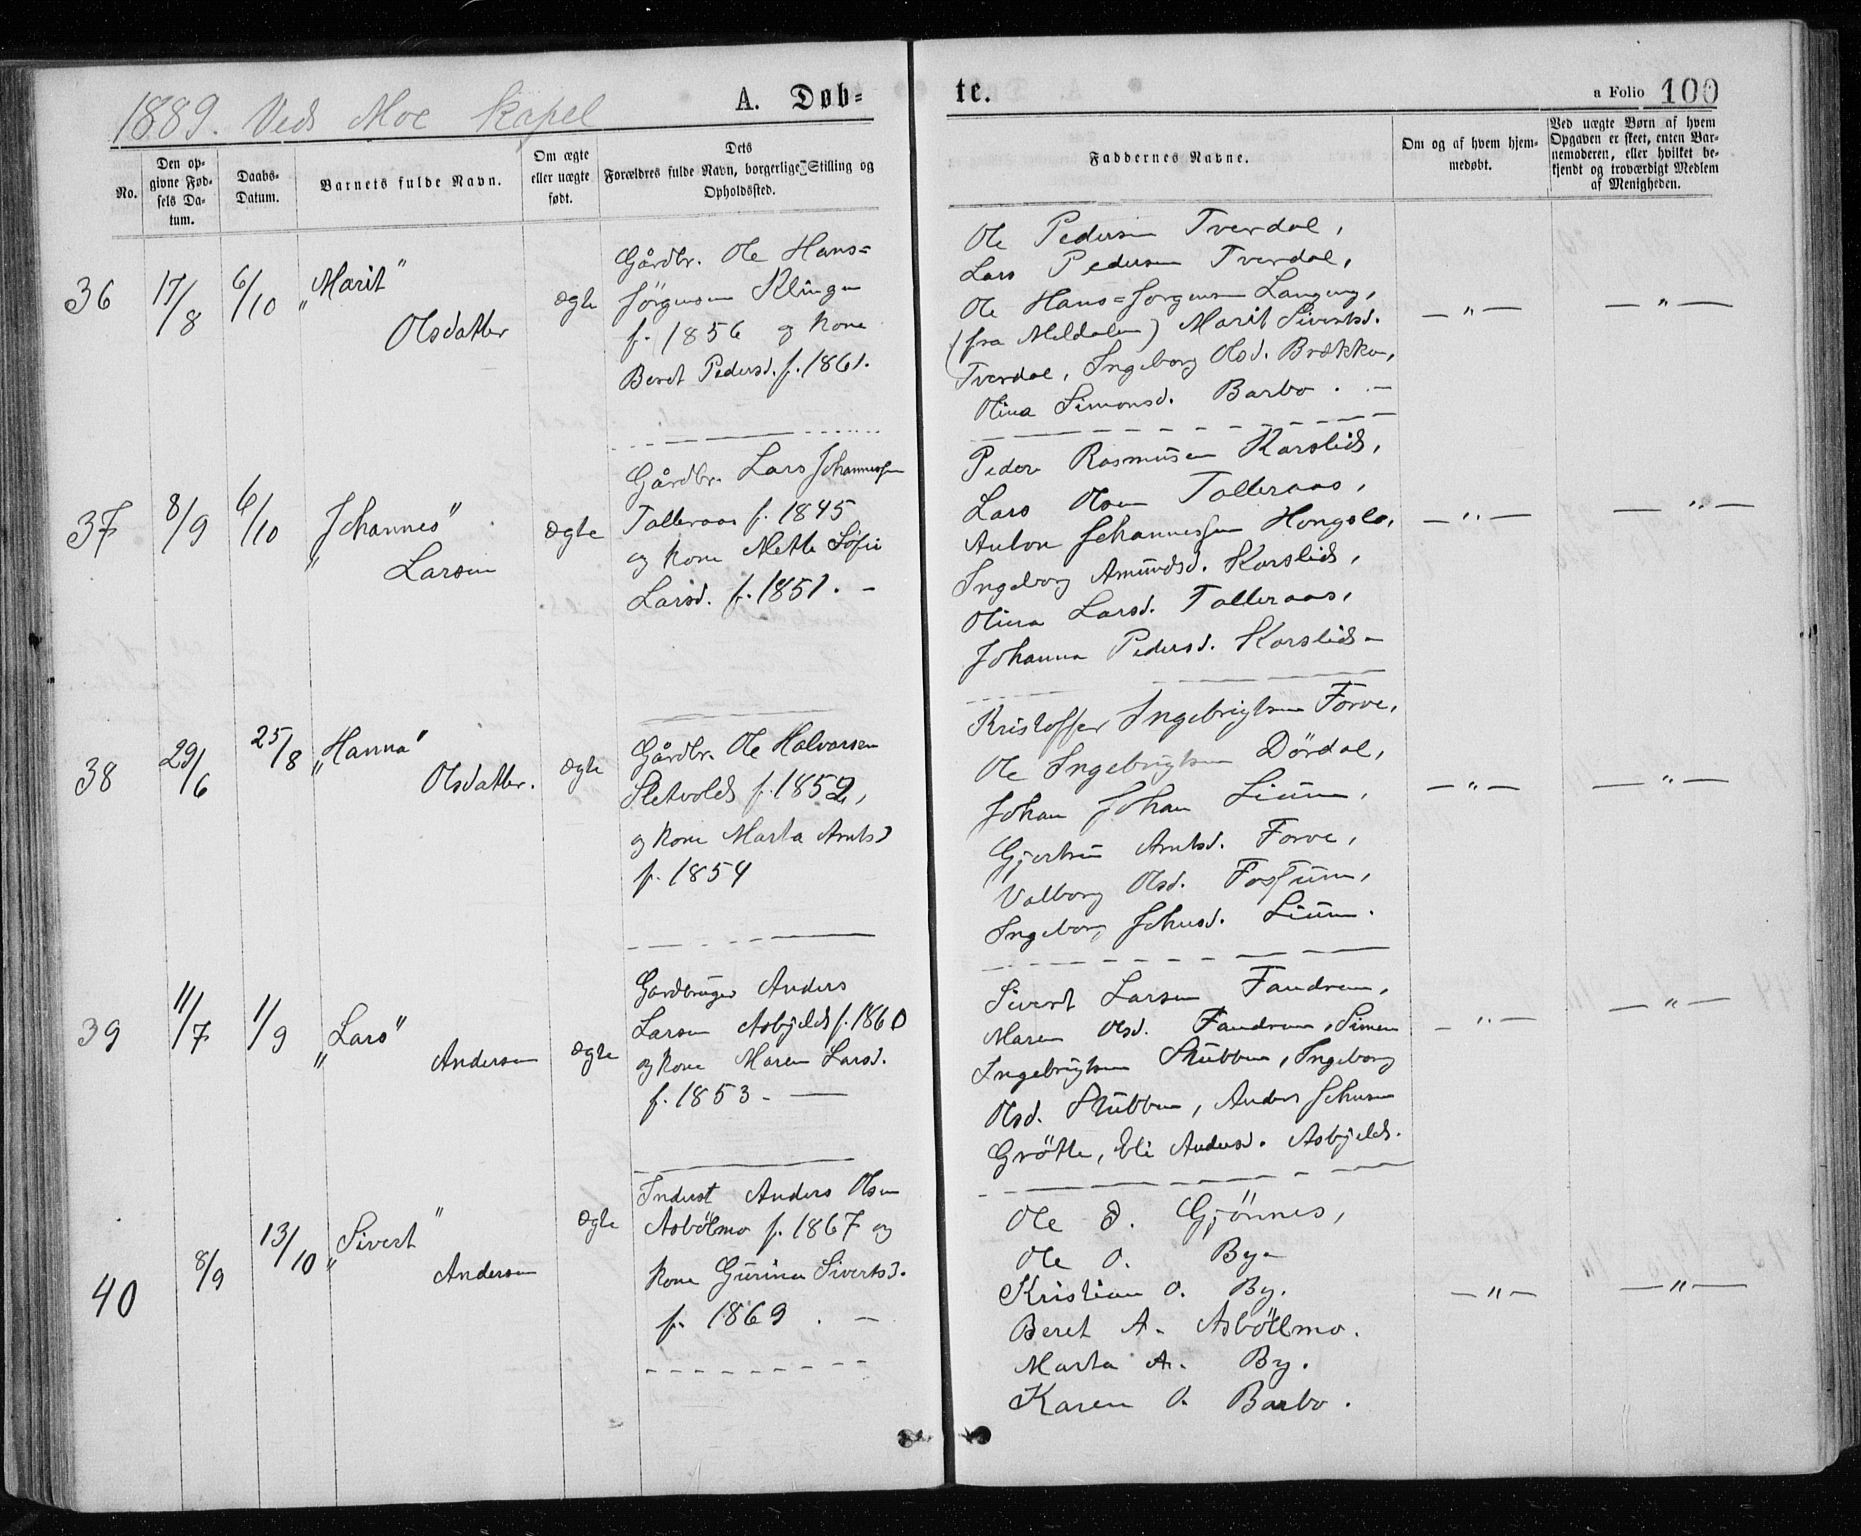 1889. Ved Moe Kapel
A. Døb=
te.
a Folio 100
No.
Den op-
givne Fød-
sels Da-
tum.
Daabs-
Datum.
Barnets fulde Navn.
Om ægte
eller uægte
født.
Dets
Forældres fulde Navn, borgerlige Stilling og
Opholdssted.
Faddernes Navne.
Om og af hvem hjem-
medøbt.
Ved uægte Børn af hvem
Opgaven er skeet, enten Bar-
nemoderen, eller hvilket be-
kjendt og troværdigt Medlem
af Menigheden.
36
17/8
6/10
"Marit"
Olsdatter
ægte
Gårdbr. Ole Hans=
Jörgensen Klingen
f. 1856 og kone
Beret Pedersd. f. 1861.
Ole Pedersen Tverdal,
Lars Pedersen Tverdal,
Ole Hans=Jorgensen Langeng,
(fra Meldalen) Marit Sivertsd.
Tverdal, Ingeborg Olsd. Brækken,
Olina Simonsd. Barbo. -
— " —
— " —
37
8/9
6/10
"Johannes"
Larsen
Ægte
Gårdbr. Lars Johannessen
Talleraas f. 1845
og kone Mette Sofie
Larsd. f. 1851. -
Peder Rasmusen Karslid,
Lars Olsen Talleraas,
Anton Johannessen Hongslo,
Ingeborg Amundsd. Karslid,
Olina Larsd. Talleraas,
Johanna Pedersd. Karslid -
— " —
— " —
38
29/6
25/8
"Hanna"
Olsdatter.
Ægte
Gårdbr. Ole Halvorsen
Sletvold f. 1852,
og kone Marta Arntsd
f. 1854
Kristoffer Ingebrigtsen Forve,
Ole Ingebrigtsen Dördal,
Johan Johan Lium,
Gjertru Arntsd. Forve,
Valborg Olsd. Fossum,
Ingeborg Johnsd. Lium.
— " —
— " —
39
11/7
1/9
"Lars"
Andersen
Ægte
Gardbruger Anders
Larsen Asbjeld f. 1860
og kone Maren Larsd.
f. 1853. —
Sivert Larsen Fandrem,
Maren Olsd. Fandrem, Simen
Ingebrigtsen Stubben, Ingeborg
Olsd. Stubben, Anders Johnsen
Grötte, Eli Andersd. Asbjeld.
— " —
— " —
40
8/9
13/10
"Sivert"
Andersen
Ægte
Inderst Anders Olsen
Asbölmo f. 1867 og
kone Gurina Sivertsd.
f. 1869. -
Ole Gjönnes,
Ole O. By -
Kristian O. By.
Beret A. Asböllmo.
Marta A. By.
Karen O. Barbo.
— " —
— " —